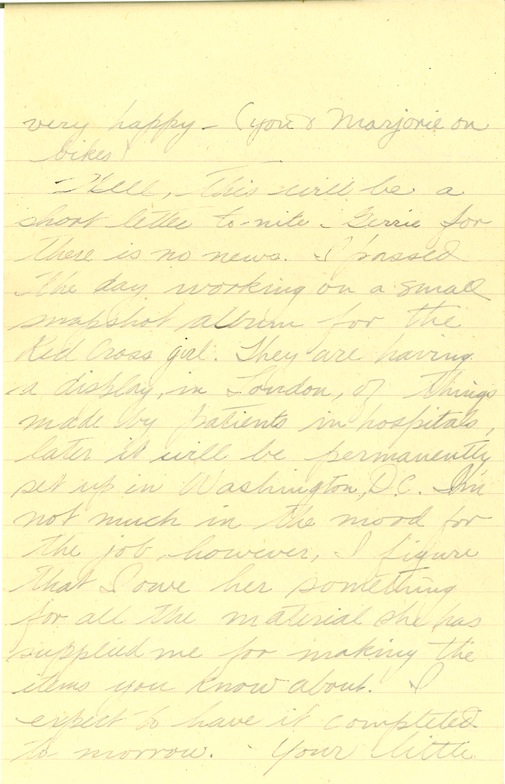 very happy - (you & Marjorie on
bikes)
Well, this will be a
short letter to-nite Gerrie for
there is no news. I passed
the day working on a small
snapshot album for the
Red Cross girl. They are having
a display, in London, of things
made by patients in hospitals,
later it will be permanently
set up in Washington, D.C. I'm
not much in the mood for
the job, however, I figure
that I owe her something
for all the material she has
supplied me for making the
items you know about. I
expect to have it completed
to morrow. Your little